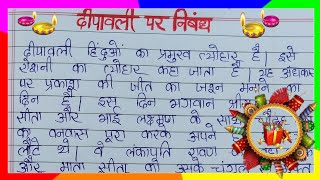 दीपावली पर निबंध
दीपावली हिंदुओं का प्रमुख त्योहार है। इसे
रोशनी का त्योहार कहा जाता है। यह अंधकार
पर प्रकाश की जीत का जश्न मनाने का
दिन है। इस दिन भगवान
सीता और भाई लक्ष्मण के
वनवास पूरा करके अपने
लौटे थे। वे लंकापति रावण
और माता सीता को उसके चंगुल